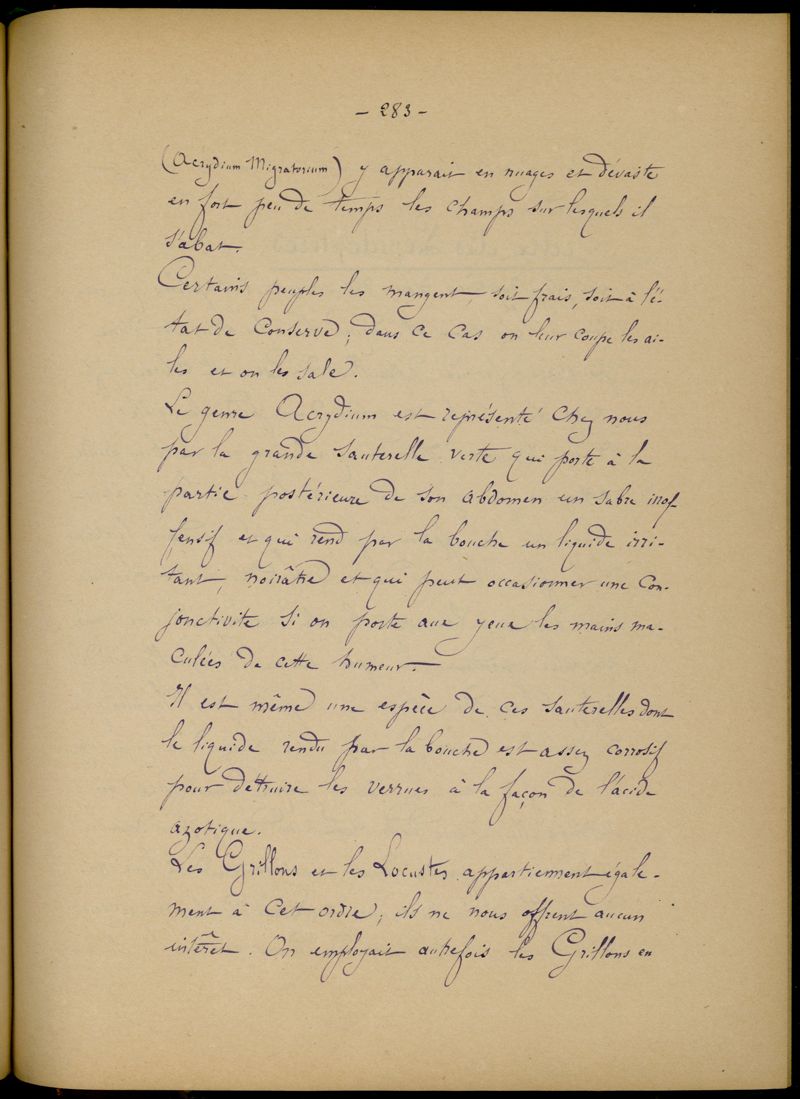 - 283 -
(Acrydium Migratorium) y apparait en nuages et dévaste
en fort peu de temps les champs sur lesquels il
s'abat.
Certains peuples les mangent, soit frais, soit à l'é-
tat de conserve; dans ce cas on leur coupe les ai-
les et on les sale.
Le genre Acrydium est représenté chez nous
par la grande sauterelle verte qui porte à la
partie postérieure de son abdomen un sabre inof
fensif et qui rend par la bouche un liquide irri-
tant, noirâtre et qui peut occasionner une con-
jonctivite si on porte aux yeux les mains ma-
culées de cette humeur.
Il est même une espèce de ces sauterelles dont
le liquide rendu par la bouche est assez corrosif
pour détruire les verrues à la façon de l'acide
azotique.
Les Grillons et les Locustes appartiennent égale-
ment à cet ordre; ils ne nous offrent aucun
intérêt. On employait autrefois les Grillons en